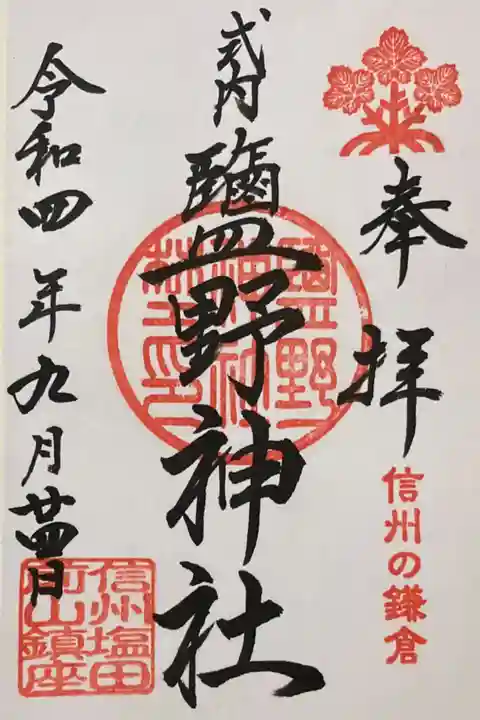 奉拝
信州の鎌倉
式内
鹽野神社
鹽野神社之印
令和四年九月廿四日
信州塩田
前山鎮座